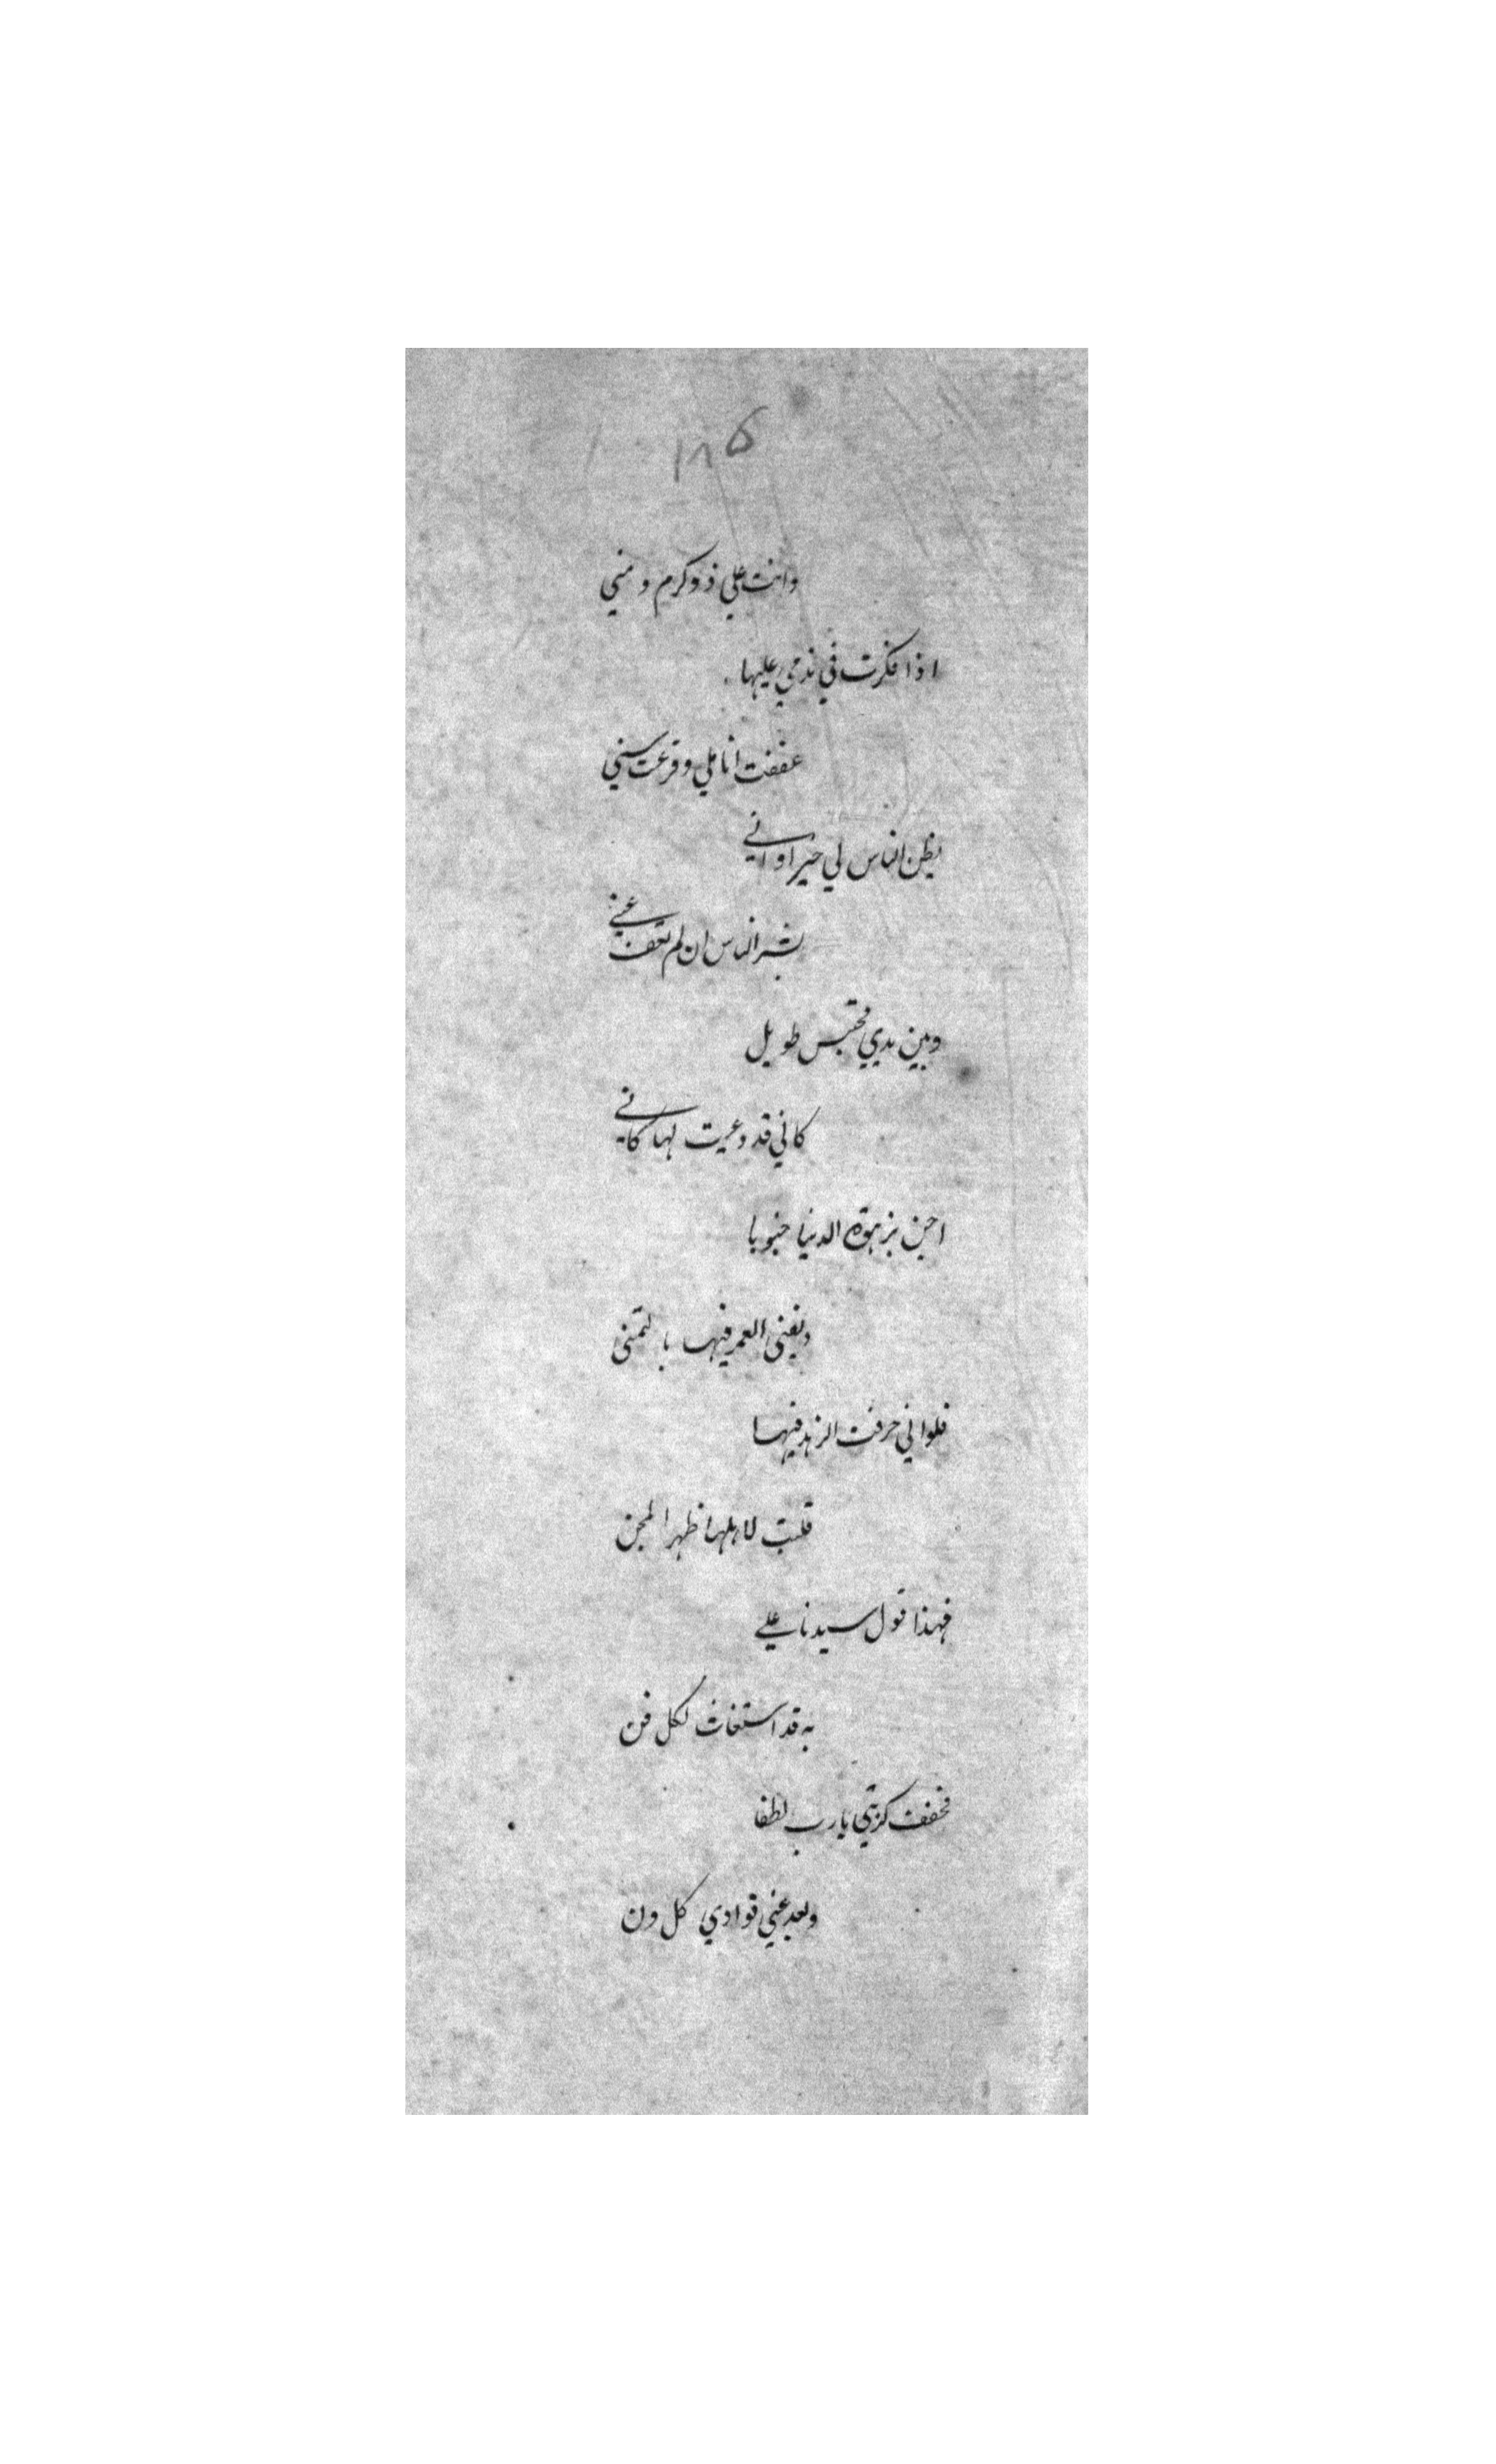 ١٨۵
وانت علي ذو كرم ومني
اذا فكرت في ندمي عليها
عففت اناملي وقرعت سني
يظن الناس لي خيرا واني
بشر الناس ان لم تعف عني
وبين يدي محتبس طويل
كاني قد دعيت لها كاني
احن بزهوة الدنيا جنوبا
ويفني العمر فيها بالتمني
فلواني حرفت الزهد فيها
قلبت لاهلها ظهر المجن
فهذا قول سيدنا علي
به قد استغاث لكل فن
فخفف كربتي يا رب لطفا
وبعد عني فوادي كل ون